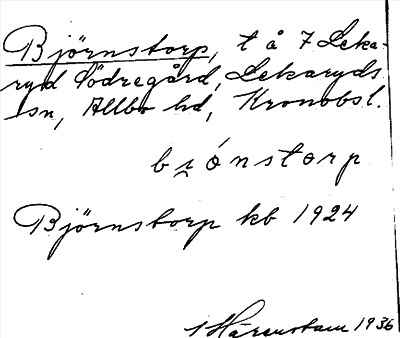 Björnstorp, t å 7 Leka-
ryd Södregård, Lekaryds
sn, Allbo hd, Kronobsl.
bi̯ónstorp
Björnstorp kb 1924
Härenstam 1936